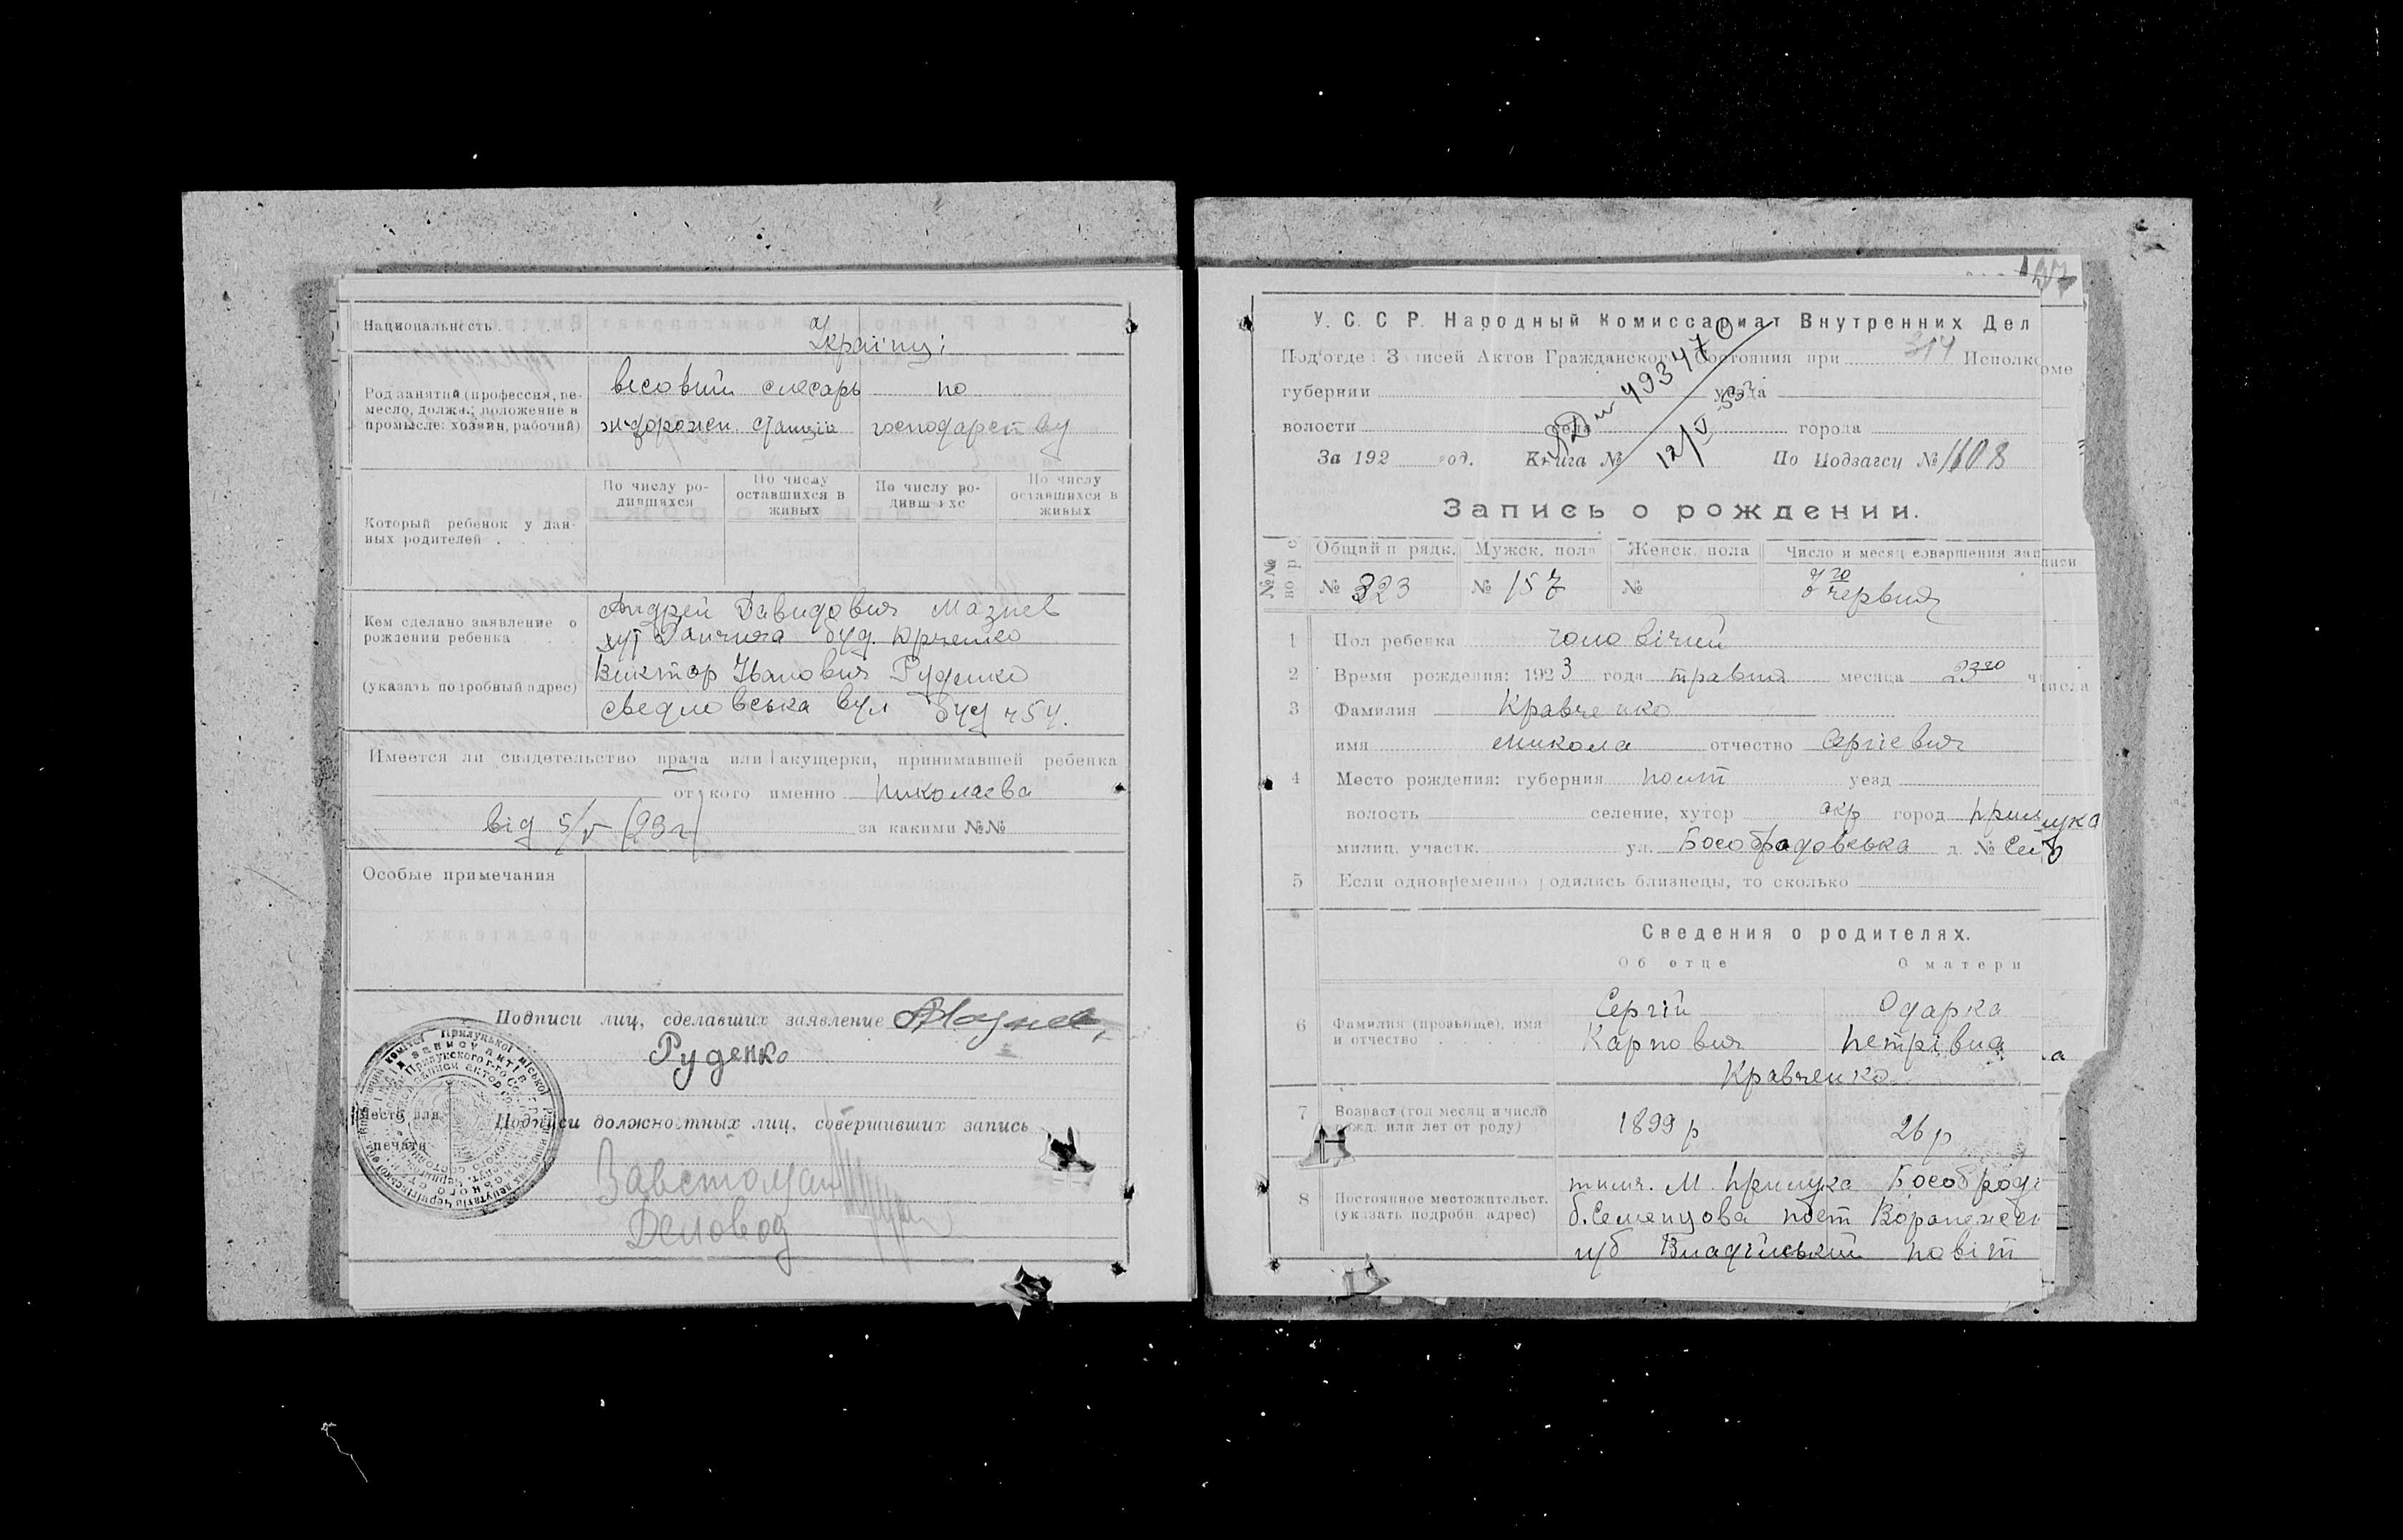 Национальность
Українці
Род занятий (профессия, ре-
месло, должн.; положение в
промысле: хозяин, рабочий)
весовий слюсарь по
ж-дорожн. станція господарству
Который ребенок у дан-
ных родителей
По числу ро-
дившихся
По числу
оставшихся в
живых
По числу ро-
дивш хс
По числу
оставшихся в
живых
Кем сделано заявление о
рождении ребенка
(указать подробный адрес)
Андрей Давидович Мазнев
хут буд. Юрченко
Виктор Іванович Руденко
вул буд ч 54.
Имеется ли свидетельство врача или акушерки, принимавшей ребенка
от кого именно Николаева
від 5/V (23 г) за какими №№
Особые примечания
Подписи лиц, сделавших заявление
Руденко
Место для
печати
Подписи должностных лиц, совершивших запись
Завстолом
Деловод
У. С. С. Р. Народный Комиссариат Внутренних Дел
Подотдел Записей Актов Гражданского Состояния при 314 Исполко
губернии уезда
волости села города
493470
12/V
За 192 год. Книга № По Подзагсу № 1108
Запись о рождении.
Общий п рядк. Мужск. пола Женск. пола Число и месяц совершения зап
№ 323 № 157 № червня
1 Пол ребенка чоловічий
2 Время рождения: 1923 года травня месяца 23го числа
3 Фамилия Кравченко
имя Микола отчество Сергієвич
4 Место рождения: губерния полт уезд
волость селение, хутор окр город Прилука
милиц. участк. ул. д. №
5 Если одновременно родились близнецы, то сколько
Сведения о родителях.
Об отце О матери
6 Фамилия (прозвище), имя
и отчество
Сергій Одарка
Карпович Петрівна
Кравченко
7 Возраст (год месяц и число
рожд. или лет от роду)
1899 р 26 р
8 Постоянное местожительст.
(указать подробн. адрес)
тимч. М. Прилука
б. Семенцова
губ повіт